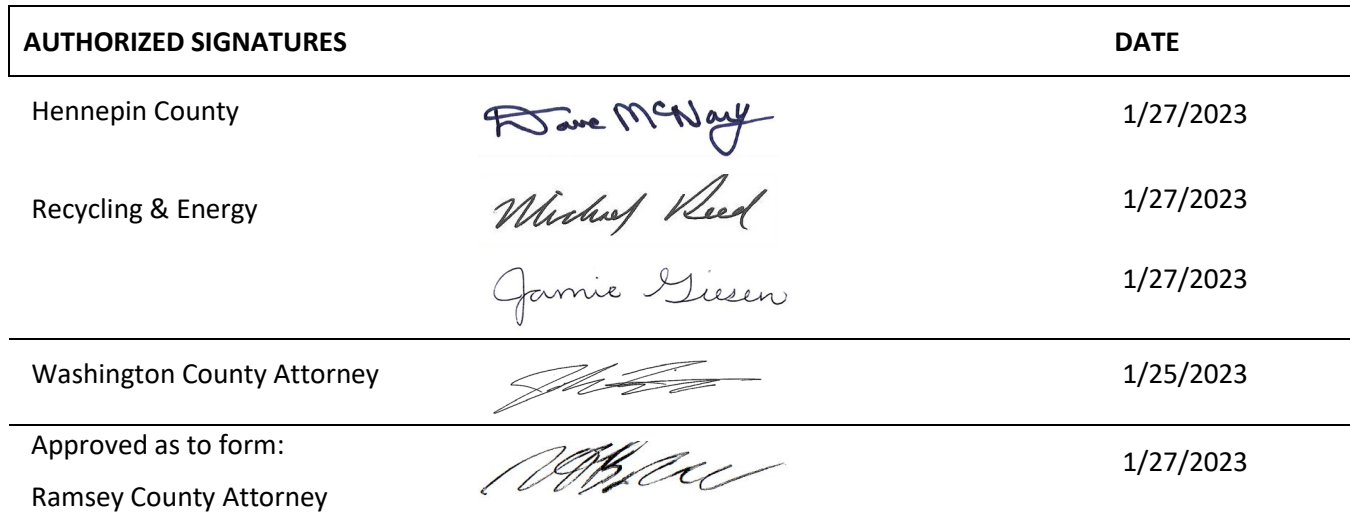 AUTHORIZED SIGNATURES DATE
Hennepin County Dave McNary 1/27/2023
Recycling & Energy Michael Reed 1/27/2023
Jamie Giesen 1/27/2023
Washington County Attorney 1/25/2023
Approved as to form:
Ramsey County Attorney 1/27/2023